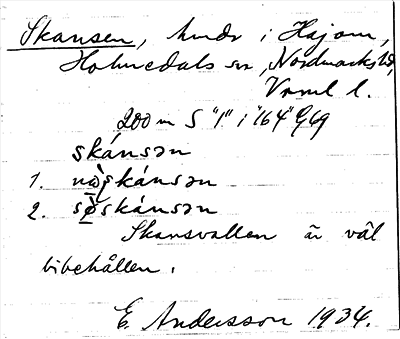 Skansen, kuds i Hajom,
Holmedals sn, Nordmarks hd,
Vrml l.
200 m S "1" i "164" Glg
skánsən
1. nø̀skánsən
2. sø̀skánsən
Skansvallen är väl
bibehållen.
E. Andersson 1934.